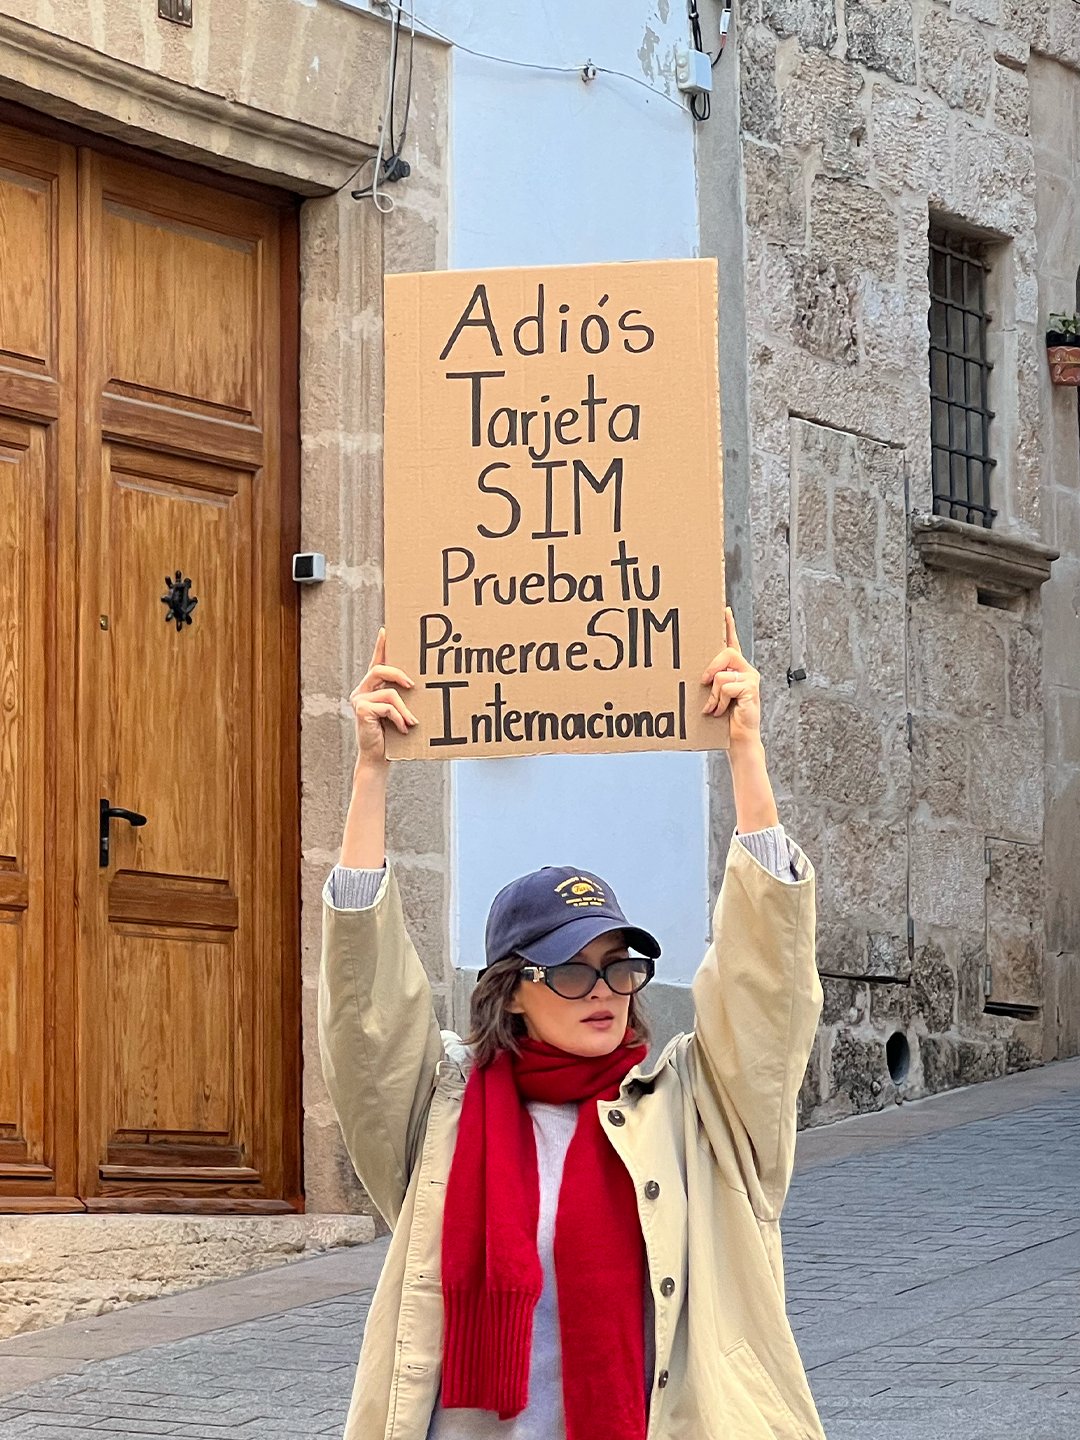 Adiós
Tarjeta
SIM
Prueba tu
Primera eSIM
Internacional